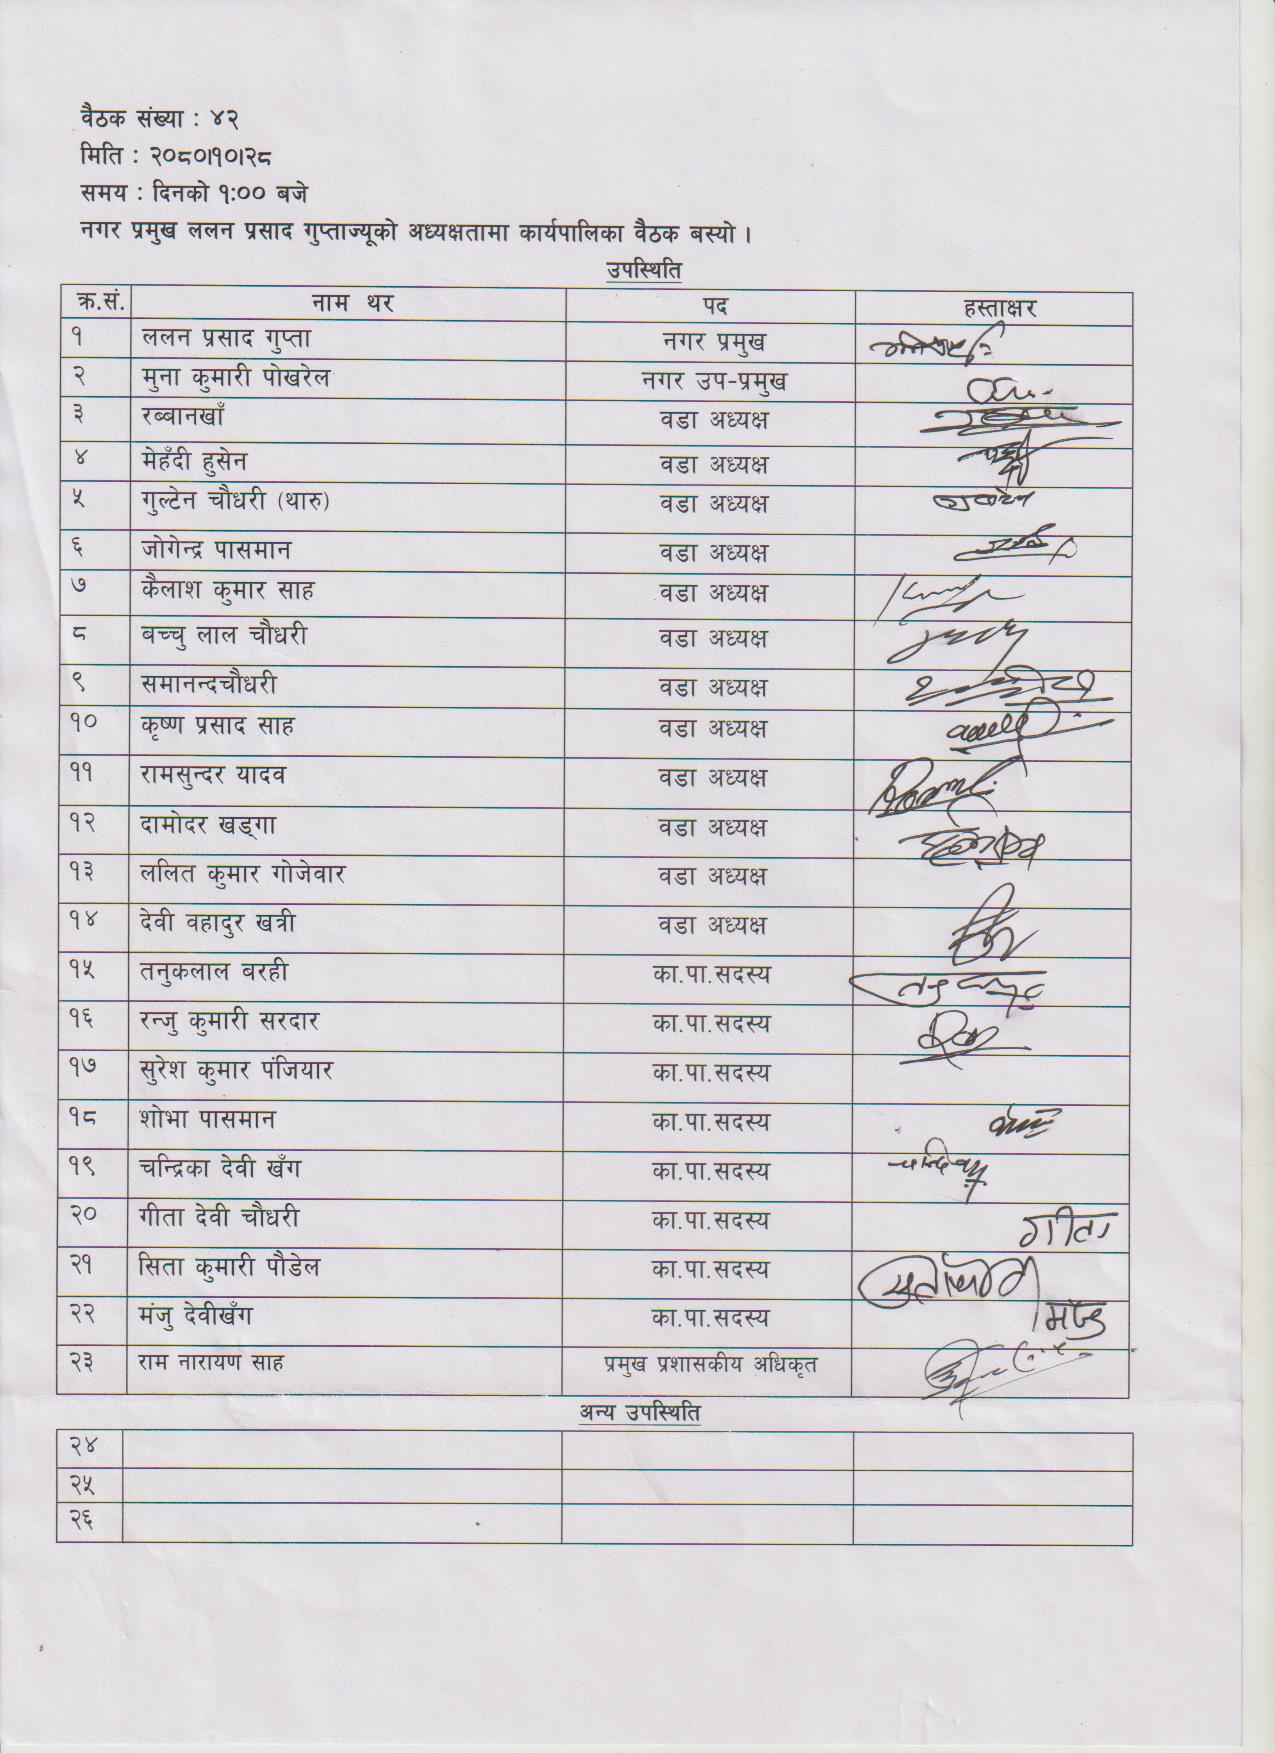 वैठक संख्या : ४२
मिति : २०८०।१०।२८
समय : दिनको १:०० बजे
नगर प्रमुख ललन प्रसाद गुप्ताज्यूको अध्यक्षतामा कार्यपालिका वैठक बस्यो ।
उपस्थिति
क्र.सं. नाम थर पद हस्ताक्षर
१ ललन प्रसाद गुप्ता नगर प्रमुख
२ मुना कुमारी पोखरेल नगर उप-प्रमुख
३ रब्बानखाँ वडा अध्यक्ष
४ मेहँदी हुसेन वडा अध्यक्ष
५ गुल्टेन चौधरी (थारु) वडा अध्यक्ष
६ जोगेन्द्र पासमान वडा अध्यक्ष
७ कैलाश कुमार साह वडा अध्यक्ष
८ बच्चु लाल चौधरी वडा अध्यक्ष
९ समानन्दचौधरी वडा अध्यक्ष
१० कृष्ण प्रसाद साह वडा अध्यक्ष
११ रामसुन्दर यादव वडा अध्यक्ष
१२ दामोदर खड्गा वडा अध्यक्ष
१३ ललित कुमार गोजेवार वडा अध्यक्ष
१४ देवी वहादुर खत्री वडा अध्यक्ष
१५ तनुकलाल बरही का.पा.सदस्य
१६ रन्जु कुमारी सरदार का.पा.सदस्य
१७ सुरेश कुमार पंजियार का.पा.सदस्य
१८ शोभा पासमान का.पा.सदस्य
१९ चन्द्रिका देवी खँग का.पा.सदस्य
२० गीता देवी चौधरी का.पा.सदस्य गीता
२१ सिता कुमारी पौडेल का.पा.सदस्य
२२ मंजु देवीखँग का.पा.सदस्य
२३ राम नारायण साह प्रमुख प्रशासकीय अधिकृत
अन्य उपस्थिति
२४
२५
२६